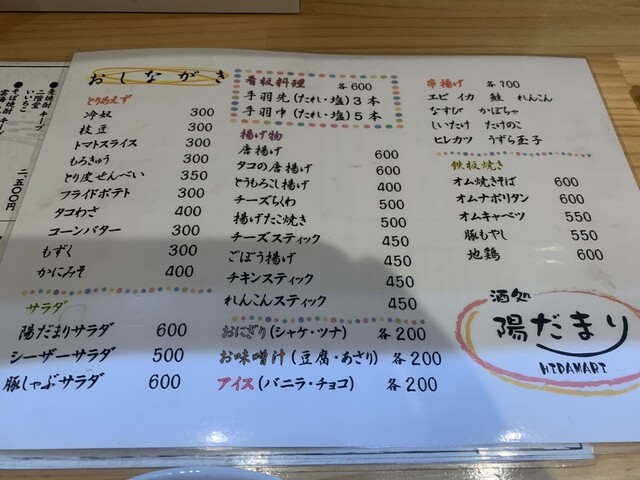 おしながき
とりあえず
冷奴 300
枝豆 300
トマトスライス 300
もろきゅう 300
とり皮せんべい 350
フライドポテト 300
タコわさ 400
コーンバター 300
もずく 300
かにみそ 400
サラダ
陽だまりサラダ 600
シーザーサラダ 500
豚しゃぶサラダ 600
看板料理 各600
手羽先(たれ・塩)3本
手羽中(たれ・塩)5本
揚げ物
唐揚げ 600
タコの唐揚げ 600
とうもろこし揚げ 400
チーズちくわ 500
揚げたこ焼き 500
チーズスティック 450
ごぼう揚げ 450
チキンスティック 450
れんこんスティック 450
おにぎり(シャケ・ツナ) 各200
お味噌汁(豆腐・あさり) 各200
アイス(バニラ・チョコ) 各200
串揚げ 各100
エビ イカ 鮭 れんこん
なすび かぼちゃ
しいたけ たけのこ
ヒレカツ うずら玉子
鉄板焼き
オム焼きそば 600
オムナポリタン 600
オムキャベツ 550
豚もやし 550
地鶏 600
酒処
陽だまり
HIDAMARI
二階堂
いいちこ
そば焼酎
二五〇〇円